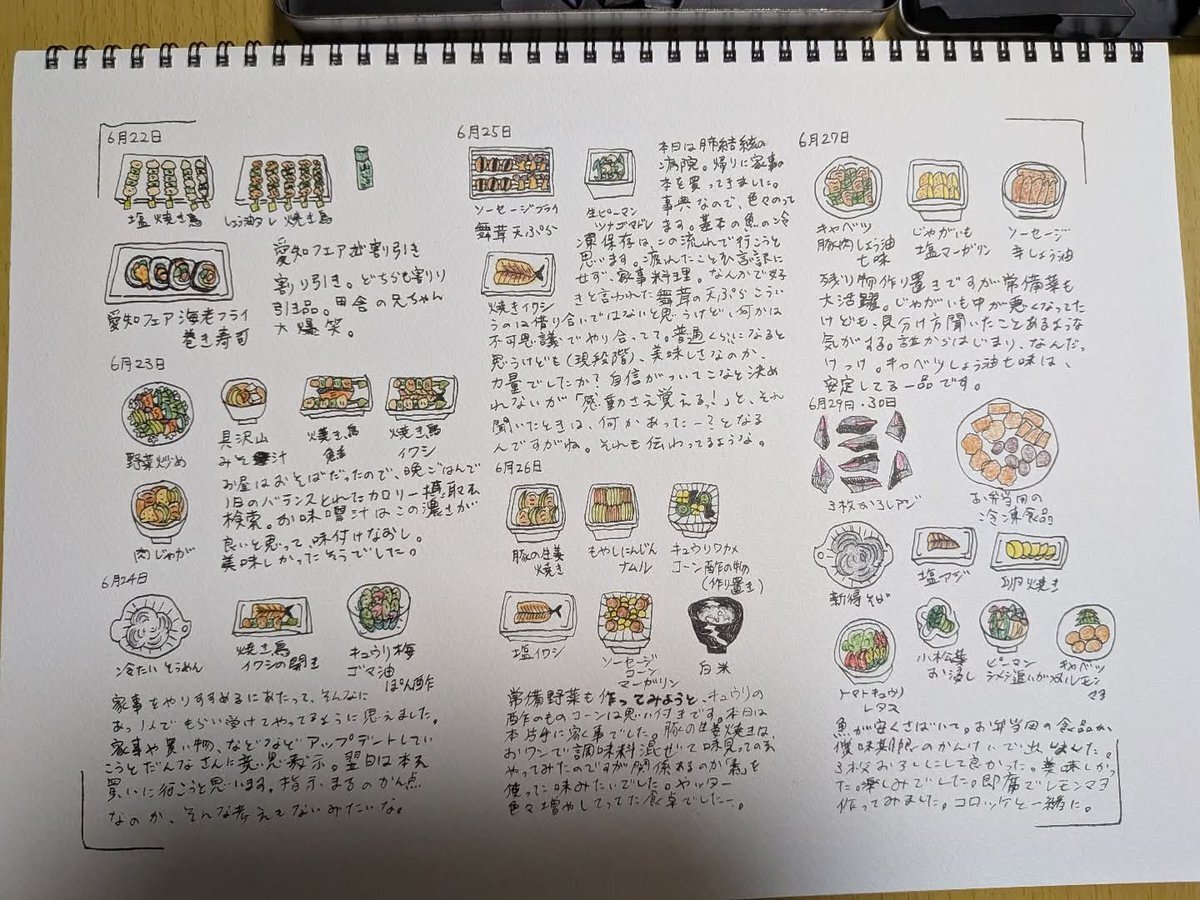 6月22日
塩焼き鳥
しょう油タレ焼き鳥
愛知フェア海老フライ
巻き寿司
愛知フェア 割り引き
割り引き。どちらも割り
引き品。田舎の兄ちゃん
大爆笑。
6月23日
野菜炒め
具沢山
みそ汁
焼き鳥
鮭
焼き鳥
イワシ
肉じゃが
お昼はおそばだったので、晩ごはんで
1日のバランスとれたカロリー摂取を
検索。お味噌汁はこの濃さが
良いと思って、味付けなおし。
美味しかったそうでした。
6月24日
冷たいそうめん
焼き鳥
イワシの開き
キュウリ梅
ゴマ油
ぽん酢
家事をやりすすめるにあたって、そんなに
あっ1人でもらい受けてやってるように思えました。
家事や買い物、などなどアップデートしてい
こうとだんなさんに意思表示。翌日は本を
買いに行こうと思います。指示まるのかん点
なのか、そんな考えもないみたいな。
6月25日
ソーセージフライ
舞茸天ぷら
生ピーマン
ツナゴマドレ
焼きイワシ
本日は肺結核の
病院。帰りに家事の
本を買ってきました。
事典なので、色々のって
ます。基本の魚の冷
凍保存は、この流れで行こうと
思います。疲れたことを言訳に
せず、家事料理。なんかで好
きと言われた舞茸の天ぷら こうい
うのは借り合いではないと思うけど、何かは
不可思議でやり合ってて。普通くらいになると
思うけども(現段階)、美味しさなのか、
力量でしたか?自信がついてこなと決め
れないが「感動さえ覚えるっ!」と、それ
聞いたときは、何かあったー?となる
んですがね。それも伝わってるような。
6月26日
豚の生姜
焼き
もやしにんじん
ナムル
キュウリワカメ
コーン酢の物
(作り置き)
塩イワシ
ソーセージ
コーン
マーガリン
白米
常備野菜も作ってみようと、キュウリの
酢のものコーンは思い付きです。本日は
本片手に家事でした。豚の生姜焼きは、
おワンで調味料混ぜて味見ってのを
やってみたのですが関係あるのか「氣」を
使った味みたいでした。ヤッター
色々増やしてってた食卓でしたー。
6月27日
キャベツ
豚肉しょう油
七味
じゃがいも
塩マーガリン
ソーセージ
辛しょう油
残り物作り置きですが常備菜も
大活躍。じゃがいも中が悪くなってた
けども、見分け方聞いたことあるような
気がする。誰からはじまり、なんだっ
けっけ。キャベツしょう油七味は、
安定してる一品です。
6月29日・30日
3枚おろしアジ
お弁当用の
冷凍食品
新得そば
塩アジ
卵焼き
トマトキュウリ
レタス
小松菜
お浸し
ピーマン
キャベツ
魚が安くさばいて。お弁当用の食品が、
賞味期限のかんけいで出しました。
3枚おろしにして良かった。美味しかっ
た。楽しみでした。即席でレモンマヨ
作ってみました。コロッケと一緒に。